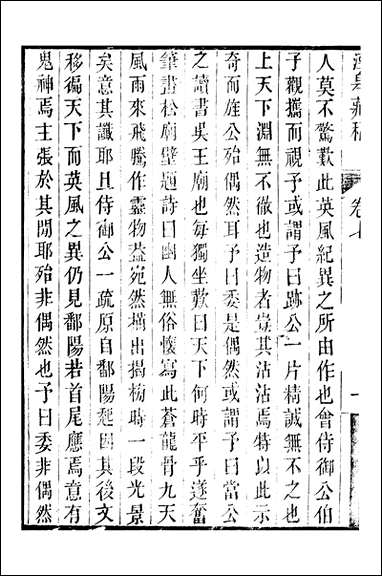 人莫不驚歎此英風紀異之所由作也會侍御公伯
子觀攜而視予或謂予曰跡公一片精誠無不之也
上天下淵無不徹也造物者豈其沾沾焉特以此示
奇而旌公殆偶然耳予曰委是偶然或謂予曰當公
之讀書吳王廟也每獨坐歎曰天下何時平乎遂奮
筆畫松廟壁題詩曰幽人無俗懷寫此蒼龍骨九天
風雨來飛騰作靈物蓋宛然描出揭榜時一段光景
矣意其讖耶且侍御公一疏原自鄱陽起因其後文
移徧天下而英風之異仍見鄱陽若首尾應焉意有
鬼神焉主張於其閒耶殆非偶然也予曰委非偶然
卷七
一